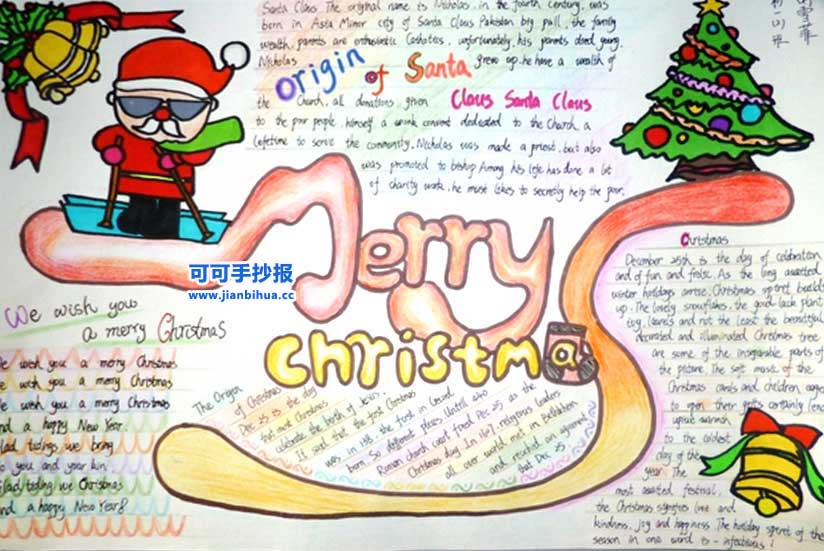 Santa Claus The original name is Nicholas, in the fourth century, was
born in Asia Minor city of Santa Claus Pakistan big pull, the family
wealth, parents are enthusiastic Catholics, unfortunately, his parents died young.
Nicholas grew up, he have a wealth of
origin of Santa
Claus Santa Claus
the Church, all donations, given
to the poor people, himself a convent dedicated to the Church, a
lifetime to serve the community. Nicholas was made a priest, but also
was promoted to bishop Among his life has done a lot
of charity work, he must likes to secretly help the poor.
Merry
christmas
可可手抄报
www.jianbihua.cc
We wish you
a merry Christmas
we wish you a merry Christmas
we wish you a merry Christmas
we wish you a merry Christmas
and a happy New Year.
Glad tidings we bring
to you and your kin
Glad tiding we Christmas
and a happy New Year!
The Origin
of Christmas
Dec 25 is the day
that most Christmas
celebrate the birth of Jesus.
It said that the first Christmas
was in 138, the first in
born. So different places. Until
Roman church fixed Dec 25 as the
Christmas day. In religious leaders
all over world met in Bethlehem
and reached an agreement
that Dec 25.
Christmas
December 25th is the day of celebration
and of fun and frolic. As the long awaited
winter holidays arrive, Christmas builds
up. The lovely snowflakes, the good-luck plant
ivy, laurels and not the least the beautiful
decorated and illuminated Christmas tree
are some of the inseparable parts of
the picture. The soft music of the
Christmas carols and children eager
to open their gifts certainly lend
warmth
to the coldest
day of the
year. The
most awaited festival,
the Christmas signifies love and
kindness, joy and happiness. The holiday spirit of the
season in one word is - infectious!